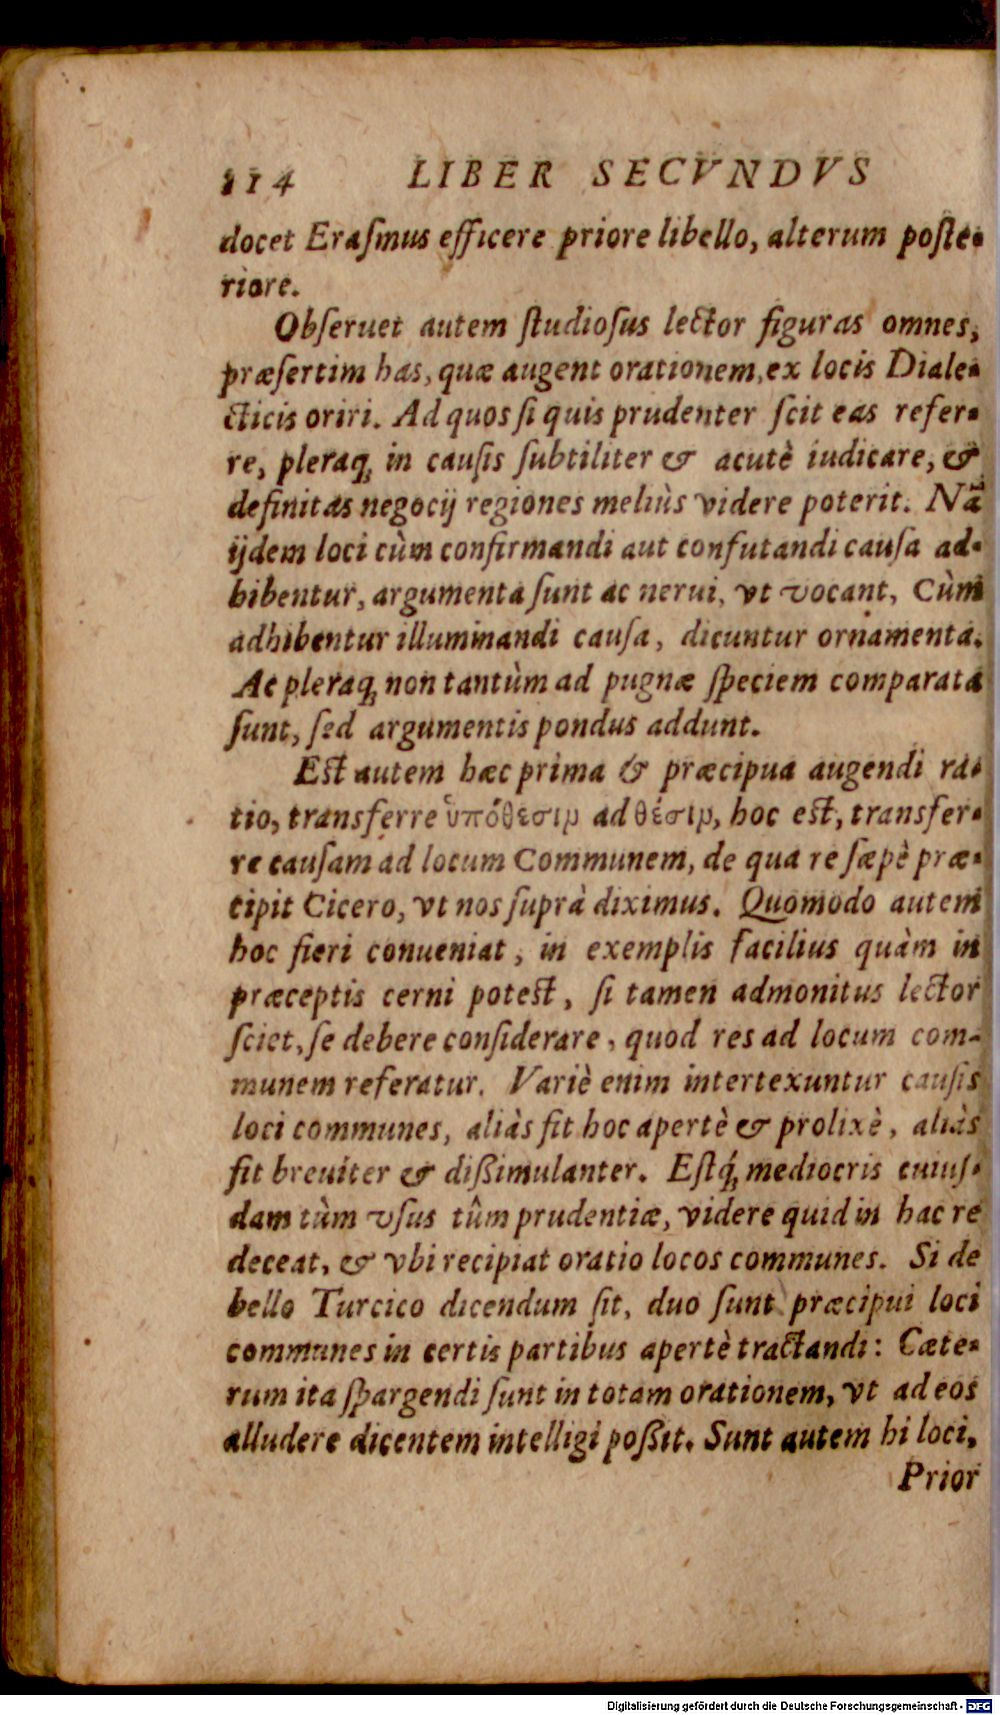 114 LIBER SECVNDVS
docet Eraſmus efficere priore libello, alterum poſte-
riore.
Obſeruet autem ſtudioſus lector figuras omnes,
præſertim has, quæ augent orationem, ex locis Diale-
cticis oriri. Ad quos ſi quis prudenter ſcit eas refer-
re, pleraq; in cauſis ſubtiliter & acutè iudicare, &
definitas negocij regiones meliùs videre poterit. Nā
ijdem loci cùm confirmandi aut confutandi cauſa ad-
hibentur, argumenta ſunt ac nerui, vt vocant, Cùm
adhibentur illuminandi cauſa, dicuntur ornamenta.
Ac pleraq; non tantùm ad pugnæ ſpeciem comparata
ſunt, ſed argumentis pondus addunt.
Eſt autem hæc prima & præcipua augendi ra-
tio, transferre ὑπόθεσιν ad θέσιν, hoc eſt, transfer-
re cauſam ad locum Communem, de qua re ſæpè præ-
cipit Cicero, vt nos ſuprà diximus. Quomodo autem
hoc fieri conueniat, in exemplis facilius quàm in
præceptis cerni poteſt, ſi tamen admonitus lector
ſciet, ſe debere conſiderare, quod res ad locum com-
munem referatur. Variè enim intertexuntur cauſis
loci communes, aliàs fit hoc apertè & prolixè, aliàs
fit breuiter & dißimulanter. Eſtq́; mediocris cuiuſ-
dam tùm vſus tûm prudentiæ, videre quid in hac re
deceat, & vbi recipiat oratio locos communes. Si de
bello Turcico dicendum ſit, duo ſunt præcipui loci
communes in certis partibus apertè tractandi: Cæte-
rum ita ſpargendi ſunt in totam orationem, vt ad eos
alludere dicentem intelligi poßit. Sunt autem hi loci,
Prior
Digitalisierung gefördert durch die Deutsche Forschungsgemeinschaft - DFG